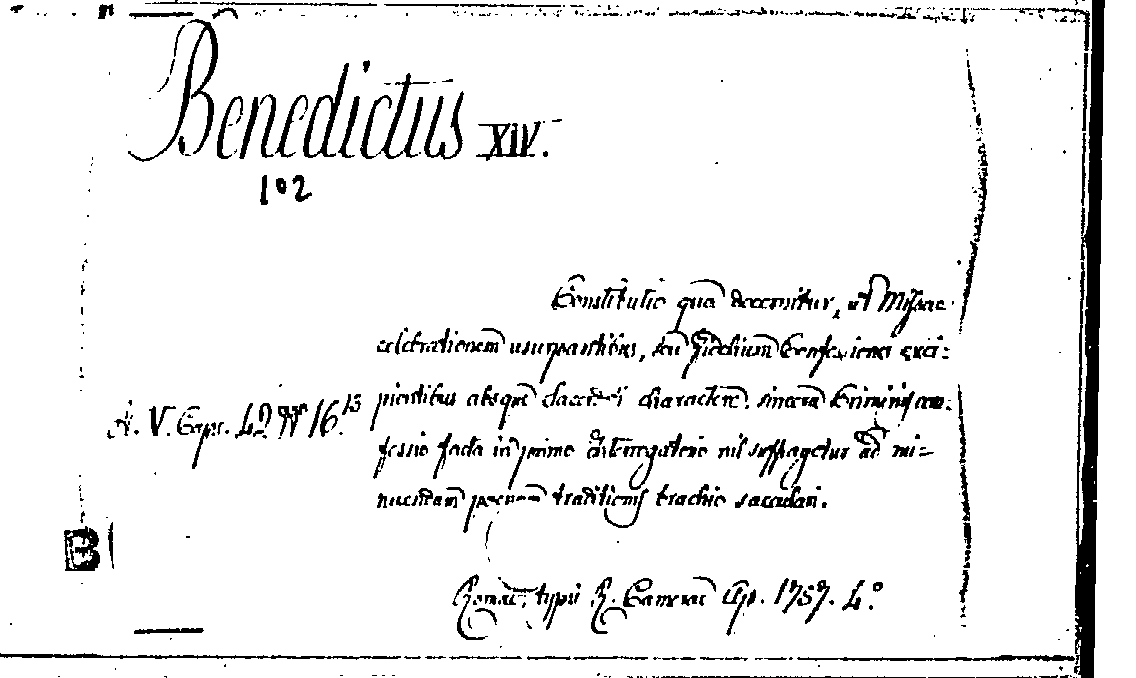 Benedictus XIV.
102
Constitutio quâ decernitur, ut Missae
celebrationem usurpantibus, seu fidelium Confessiones exci-
pientibus absque Sacerdoti charactere, sincera Criminis con-
A. V. Caps. 42 N 16.13
fessio facta in primo interrogatorio nil suffragetur ad mi-
nuendam poenam traditionis brachio saeculari.
B
Romae, typis R. Camerae Ap. 1757. 4.°